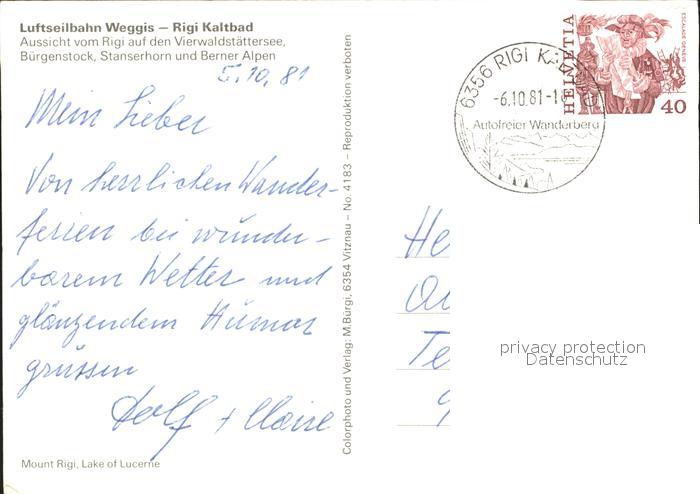 Luftseilbahn Weggis – Rigi Kaltbad
Aussicht vom Rigi auf den Vierwaldstättersee,
Bürgenstock, Stanserhorn und Berner Alpen
5.10.81
Mein Lieber
Von herrlichen Wander-
ferien bei wunder-
barem Wetter und
glänzendem Humor
grüssen
Dolf + Claire
Mount Rigi, Lake of Lucerne
Colorphoto und Verlag: M. Bürgi, 6354 Vitznau – No. 4183 – Reproduktion verboten
6356 RIGI
-6.10.81-
Autofreier Wanderberg
HELVETIA
ESCALADE GENÈVE
40
He
Te
privacy protection
Datenschutz